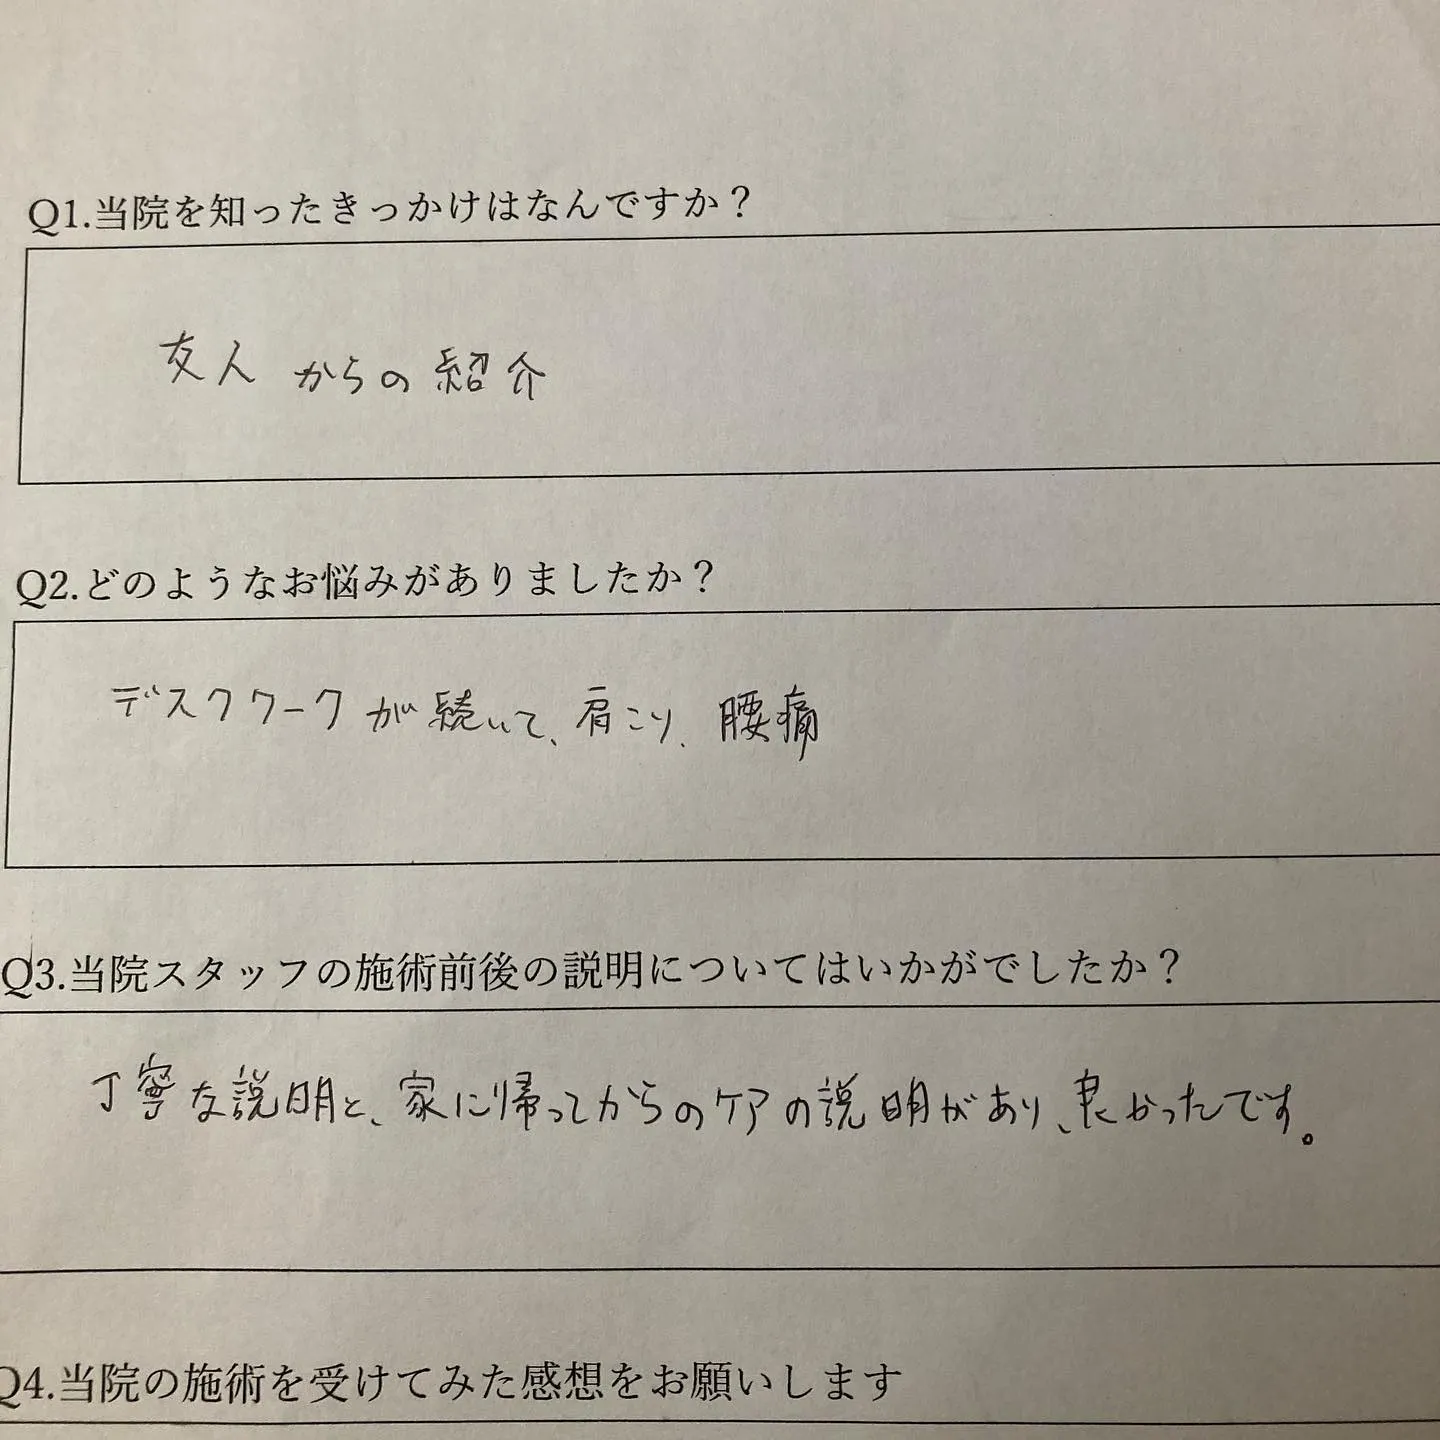 Q1.当院を知ったきっかけはなんですか？
友人からの紹介
Q2.どのようなお悩みがありましたか？
デスクワークが続いて、肩こり、腰痛
Q3.当院スタッフの施術前後の説明についてはいかがでしたか？
丁寧な説明と、家に帰ってからのケアの説明があり、良かったです。
Q4.当院の施術を受けてみた感想をお願いします